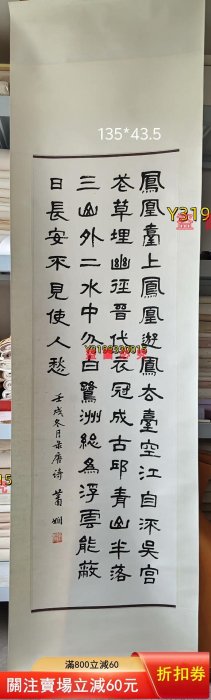 135*43.5
鳳凰臺上鳳凰遊鳳去臺空江自流吳宮
花草埋幽徑晉代衣冠成古邱青山半落
三山外二水中分白鷺洲總為浮雲能蔽
日長安不見使人愁
壬戌冬月录唐诗 蕭娴
Y319
滿800立減60
關注賣場立減60元
折扣券